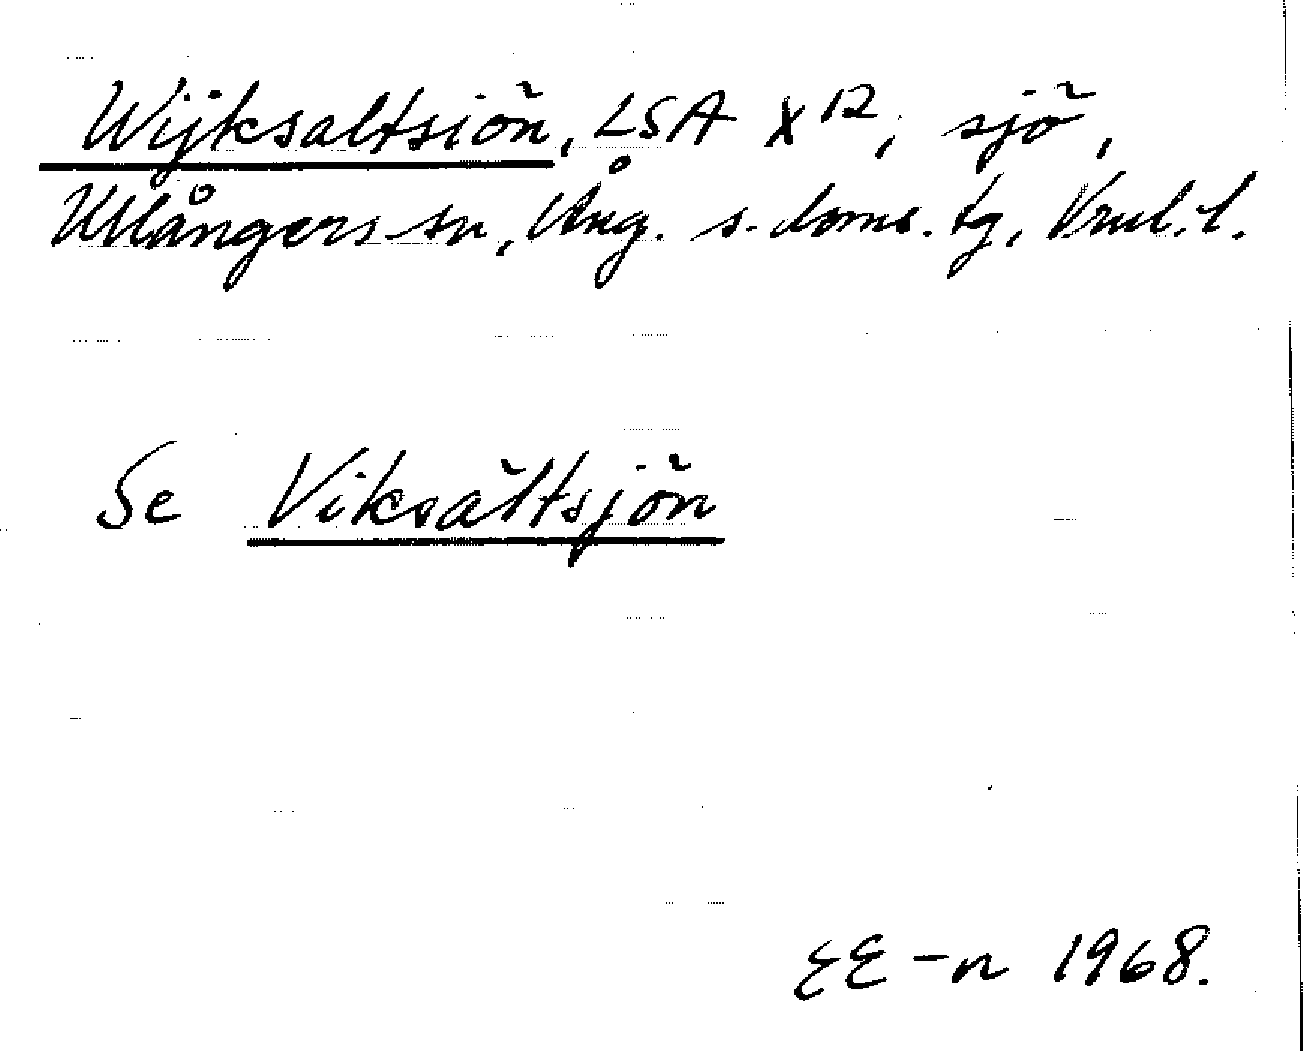 Wijksaltsiön, LSA X 12, sjö,
Ullångers sn, Ång. s. doms. tg, Vnl. l.
Se Viksaltsjön
EE-n 1968.